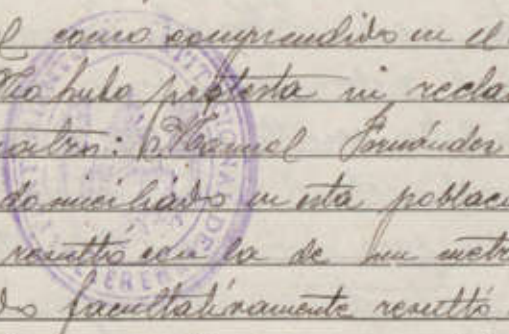 como comprendido en el
No hubo protesta ni recla
cuatro: Manuel Fernández
domiciliado en esta poblac
resultó con la de un metr
do facultativamente resultó